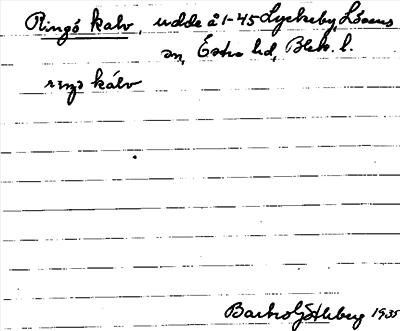 Ringö kalv, udde å 1-45 Lyckeby, Lösens
sn, Östra hd, Blek. l.
kálv
1935